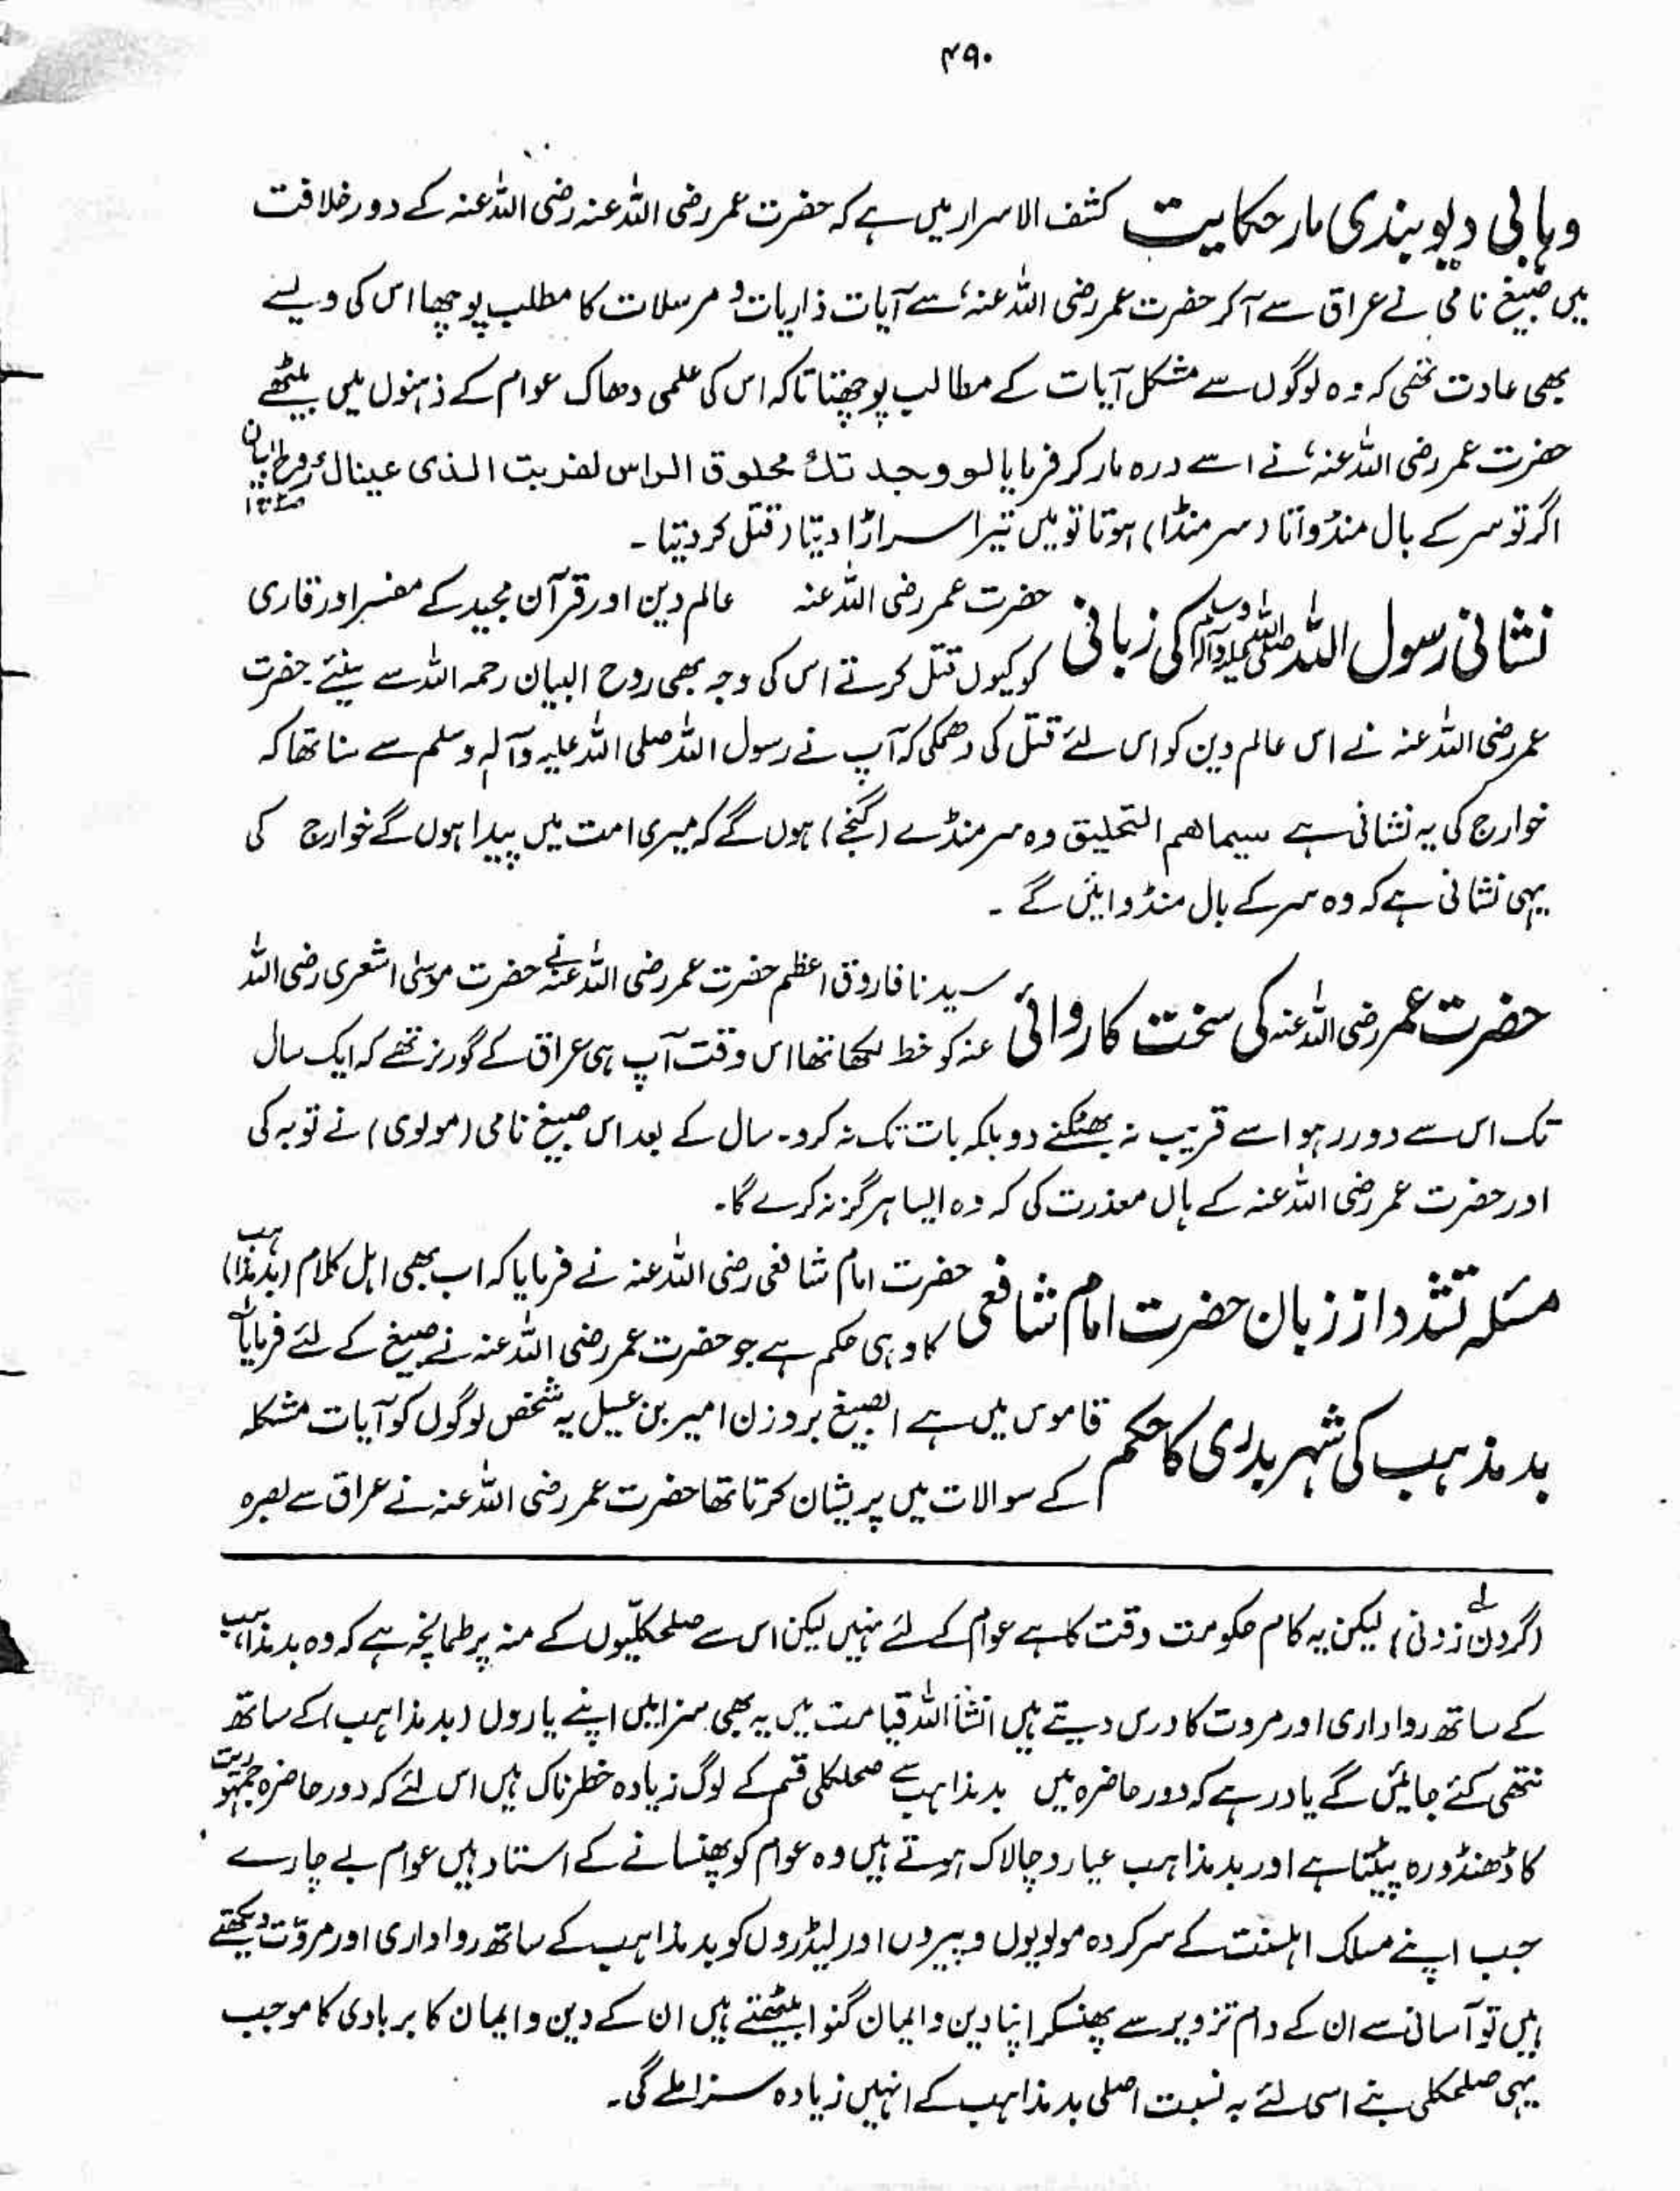 ۴۹۰
وہابی دیوبندی مار حکایت کشف الاسرار میں ہے کہ حضرت عمر رضی اللہ عنہ رضی اللہ عنہ کے دور خلافت
میں صبیغ نامی نے عراق سے آکر حضرت عمر رضی اللہ عنہ، سے آیات ذاریات و مرسلات کا مطلب پوچھا اس کی ویسے
بھی عادت تھی کہ وہ لوگوں سے مشکل آیات کے مطالب پوچھتا تاکہ اس کی علمی دھاک عوام کے ذہنوں میں بیٹھے
حضرت عمر رضی اللہ عنہ، نے اسے درہ مار کر فرمایا لو وجد تك محلوق الراس لضربت الذی عینال روح البیان
اگر تو سر کے بال منڈواتا (سر منڈا) ہوتا تو میں تیرا سر اڑا دیتا (قتل کر دیتا ۔
نشانی رسول اللہ صلی اللہ علیہ وآلہ وسلم کی زبانی حضرت عمر رضی اللہ عنہ عالم دین اور قرآن مجید کے مفسر اور قاری
کو کیوں قتل کرتے اس کی وجہ بھی روح البیان رحمہ اللہ سے سنیئے حضرت
عمر رضی اللہ عنہ نے اس عالم دین کو اس لئے قتل کی دھمکی کہ آپ نے رسول اللہ صلی اللہ علیہ وآلہ وسلم سے سنا تھا کہ
خوارج کی یہ نشانی ہے سیماھم التحلیق وہ سر منڈے (گنجے) ہوں گے کہ میری امت میں پیدا ہوں گے خوارج کی
یہی نشانی ہے کہ وہ سر کے بال منڈوائیں گے ۔
حضرت عمر رضی اللہ عنہ کی سخت کاروائی سیدنا فاروق اعظم حضرت عمر رضی اللہ عنہ نے حضرت موسیٰ اشعری رضی اللہ
عنہ کو خط لکھا تھا اس وقت آپ ہی عراق کے گورنر تھے کہ ایک سال
تک اس سے دور رہو اسے قریب نہ بھٹکنے دو بلکہ بات تک نہ کرو۔ سال کے بعد اس صبیغ نامی (مولوی) نے توبہ کی
اور حضرت عمر رضی اللہ عنہ کے ہاں معذرت کی کہ وہ ایسا ہرگز نہ کرے گا۔
مسئلہ تشدد از زبان حضرت امام شافعی حضرت امام شافعی رضی اللہ عنہ نے فرمایا کہ اب بھی اہل کلام (بدمذاہب)
کا وہی حکم ہے جو حضرت عمر رضی اللہ عنہ نے صبیغ کے لئے فرمایا
بد مذہب کی شہر بدری کا حکم قاموس میں ہے الصبیغ بروزن امیر بن عسیل یہ شخص لوگوں کو آیات مشکلہ
کے سوالات میں پریشان کرتا تھا حضرت عمر رضی اللہ عنہ نے عراق سے بصرہ
(گردن زدنی) لیکن یہ کام حکومت وقت کا ہے عوام کے لئے نہیں لیکن اس سے صلحکلیّوں کے منہ پر طمانچہ ہے کہ وہ بد مذاہب
کے ساتھ رواداری اور مروت کا درس دیتے ہیں انشأ اللہ قیامت میں یہ بھی سزا میں اپنے یاروں (بد مذاہب) کے ساتھ
نتھی کئے جائیں گے یاد رہے کہ دور حاضرہ میں بد مذاہب سے صحلکلی قسم کے لوگ زیادہ خطرناک ہیں اس لئے کہ دور حاضرہ جمہوریت
کا ڈھنڈورہ پیٹتا ہے اور بد مذاہب عیار و چالاک ہوتے ہیں وہ عوام کو پھنسانے کے استاد ہیں عوام بے چارے
جب اپنے مسلک اہلسنت کے سرکردہ مولویوں و پیروں اور لیڈروں کو بد مذاہب کے ساتھ رواداری اور مروّت دیکھتے
ہیں تو آسانی سے ان کے دام تزویر سے پھنسکر اپنا دین و ایمان گنوا بیٹھتے ہیں ان کے دین و ایمان کا بربادی کا موجب
یہی صلحکلی بنے اسی لئے بہ نسبت اصلی بد مذاہب کے انہیں زیادہ سزا ملے گی۔